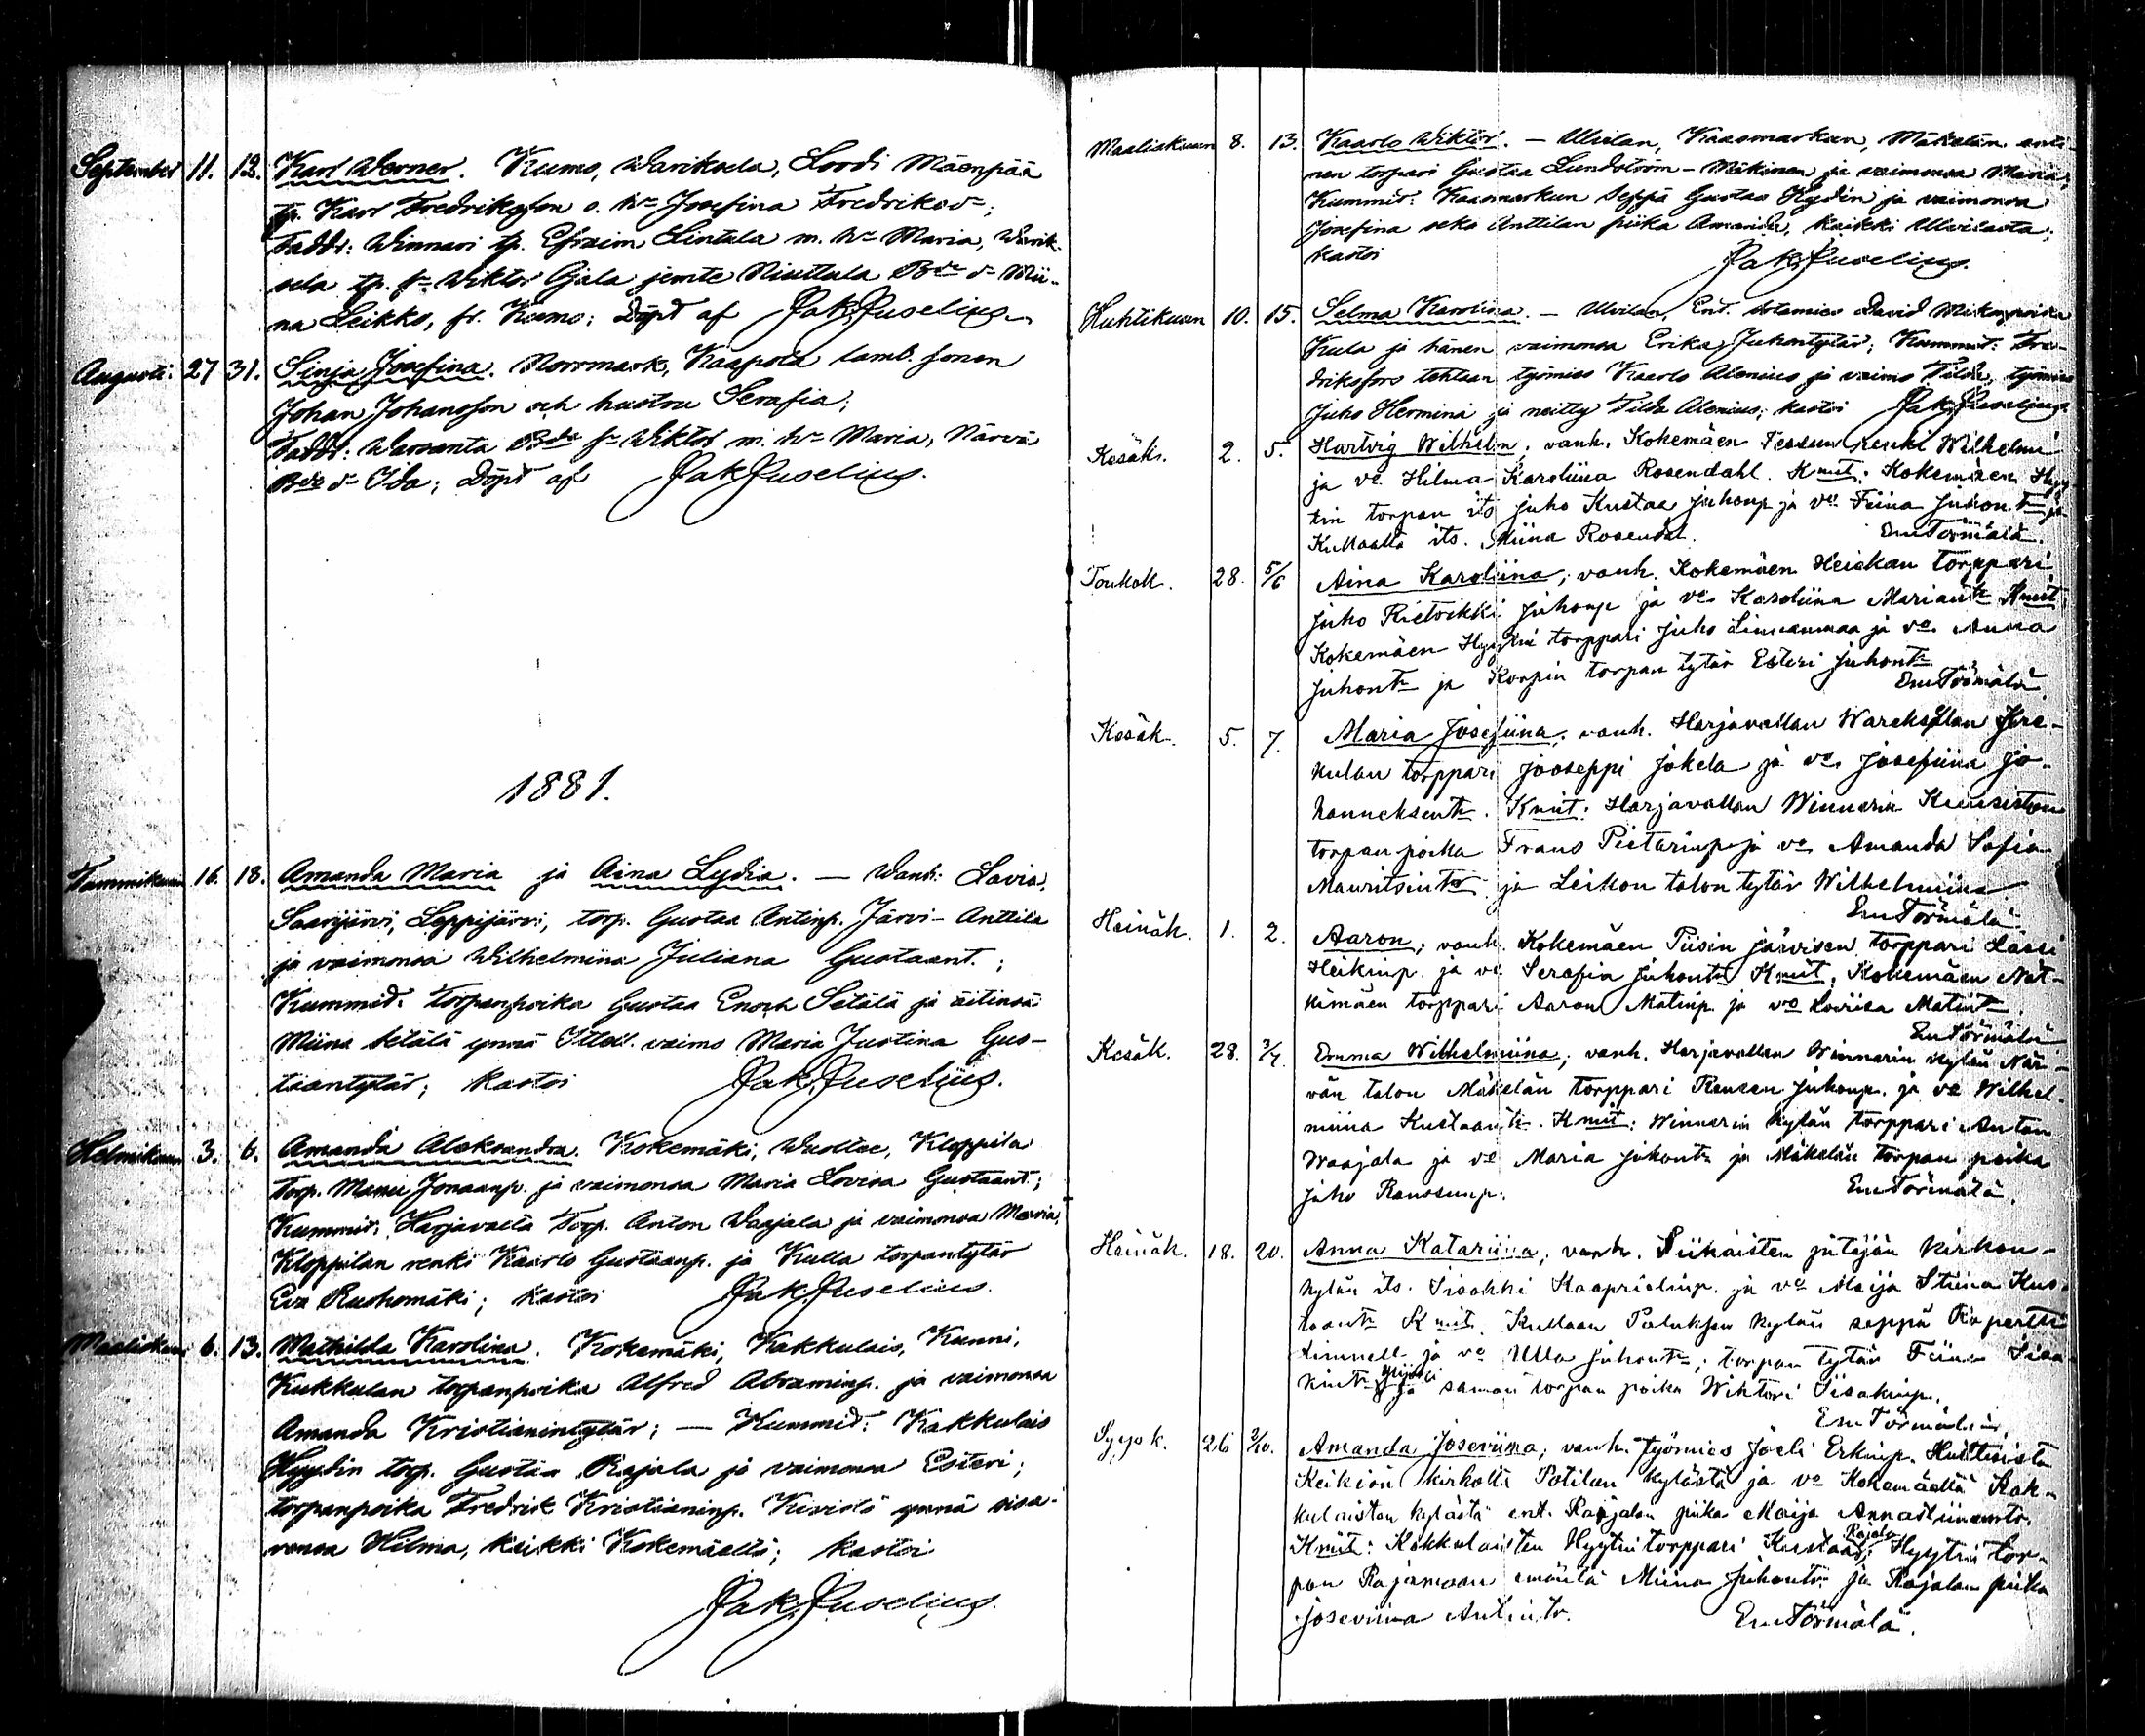 September 11. 12. Karl Werner. Kumo, Wariksela, Loodi Mäenpää
tp. Karl Fredriksson o. h:u Josefina Fredriksdr;
Faddr: Winnari tp. Efraim Lintala m. h:u Maria, Warik-
sela tp. s:n Wiktor Ojala jemte Niuttala Bde dr Mii-
na Leikko, fr. Kumo; Döpt af Jak Juselius
Augusti 27 31. Sinja Josefina. Norrmark, Kaapola lamb. sonen
Johan Johansson och hustru Serafia;
Faddr: Warsanta Bde s:n Wiktor m. h:u Maria, Närvä
Bde dr Ida; Döpt af Jak Juselius.
1881.
Tammikuun 16. 18. Amanda Maria ja Aina Lydia. — Wanh: Lavia,
Saarijärvi, Leppijärvi, torp. Gustaa Antinp. Järvi-Anttila
ja vaimonsa Wilhelmiina Juliana Gustaant.;
Kummid: Torpanpoika Gustaa Enoch Setälä ja äitinsä
Miina Setälä ynnä Ittell. vaimo Maria Justina Gus-
taantytär; kastoi Jak. Juselius.
Helmikuun 3. 6. Amanda Aleksandra. Kokemäki, Wuoltee, Kloppila
Torp. Manu Jonaanp. ja vaimonsa Maria Lovisa Gustaant;
Kummid: Harjavalta Torp. Anton Waajala ja vaimonsa Maria,
Kloppilan renki Kaarlo Gustaanp. ja Kulla torpantytär
Eva Ruohomäki; kastoi Jak. Juselius.
Maaliskuun 6. 13. Mathilda Karolina. Kokemäki, Kakkulais, Kunni,
Kukkulan torpanpoika Alfred Abraminp. ja vaimonsa
Amanda Kristianintytär; — Kummid: Kakkulais
Hyydin torp. Gustaa Rajala ja vaimonsa Esteri;
torpanpoika Fredrik Kristianinp. Kivistö ynnä sisa-
rensa Hilma, kaikki Kokemäeltä; kastoi
Jak. Juselius.
Maaliskuun 8. 13. Kaarlo Wiktor. — Ulvilan, Kaasmarkun, Mäkelän enti-
nen torpari Gustaa Lundström-Mäkinen ja vaimonsa Maria;
Kummid: Kaasmarkun Seppä Gustaa Hydin ja vaimonsa
Josefina sekä Anttilan piika Amanda, kaikki Ulvilasta;
kastoi Jak. Juselius.
Huhtikuun 10. 15. Selma Karolina. — Ulvilan, Ent. sotamies David Mikonpoika
Kula ja hänen vaimonsa Erika Juhontytär; Kummit: Fre-
driksfors tehtaan työmies Kaarlo Alenius ja vaimo Tilda, työmies
Juho Hermina ja neitty Tilda Alenius; kastoi Jak. Juselius.
Kesäk. 2. 5. Hartvig Wilhelm; vanh. Kokemäen renki Wilhelmi
ja vo Hilma Karoliina Rosendahl. Kmit: Kokemäen Hyy-
tin torpan its Juho Kustaa Juhonp ja vo Fiina Juhont ja
Kullaalta its. Miina Rosendal. Em Törmälä.
Toukok. 28. 5/6 Aina Karoliina; vanh. Kokemäen Heiskan torppari
Juho Rietrikki Juhonp ja vo Karoliina Mariantr Kmit
Kokemäen Hyytin torppari Juho Linnanmaa ja vo Anna
Juhontr ja Korpin torpan tytär Esteri Juhontr
Em Törmälä.
Kesäk. 5. 7. Maria Josefiina; vanh. Harjavallan
kulan torppari Jooseppi Jokela ja vo Josefiina Jo-
hanneksentr. Kmit: Harjavallan Winnarin
torpan poika Frans Pietarinp ja vo Amanda Sofia
Mauritsintr ja Leikon talon tytär Wilhelmiina
Em Törmälä
Heinäk. 1. 2. Aaron; vanh. Kokemäen Piisin järvisen torppari Lassi
Heikinp. ja vo Serafia Juhontr Kmit: Kokemäen Nät-
kimäen torppari Aaron Matinp. ja vo Loviisa Matintr.
Em Törmälä
Kesäk. 28. 3/7. Emma Wilhelmiina; vanh. Harjavallan Winnarin kylän När-
vän talon Mäkelän torppari Ransen Juhonp. ja vo Wilhel-
miina Kustaantr. Kmit: Winnarin kylän torppari Anton
Waajala ja vo Maria Juhontr ja Mäkelän torpan poika
Juho Ranssunp. Em Törmälä.
Heinäk. 18. 20. Anna Katariina; vanh. Siikaisten pitäjän kirkon-
kylän its. Iisakki Kaaprielinp. ja vo Maija Stiina Kus-
taantr Kmit. Kullaan Paluksen kylän seppä Ropertti
Linnell ja vo Ulla Juhontr; torpan tytär Fiina Iisa-
kintr ja saman torpan poika Wihtori Iisakinp.
Em Törmälä.
Syysk. 26 2/10. Amanda Joseviina; vanh. Työmies Joeli Erkinp. Huittisista
Keikiön kirkolta Sotilan kylästä ja vo Kokemäeltä Kak-
kulaisten kylästä ent. Raajalan piika Maija Annastiinantr.
Kmit: Kakkulaisten Hyytin torppari Kustaa Rajala, Hyytin tor-
pan Rajamaan emäntä Miina Juhontr. ja Rajalan piika
Joseviina Antintr. Em Törmälä.